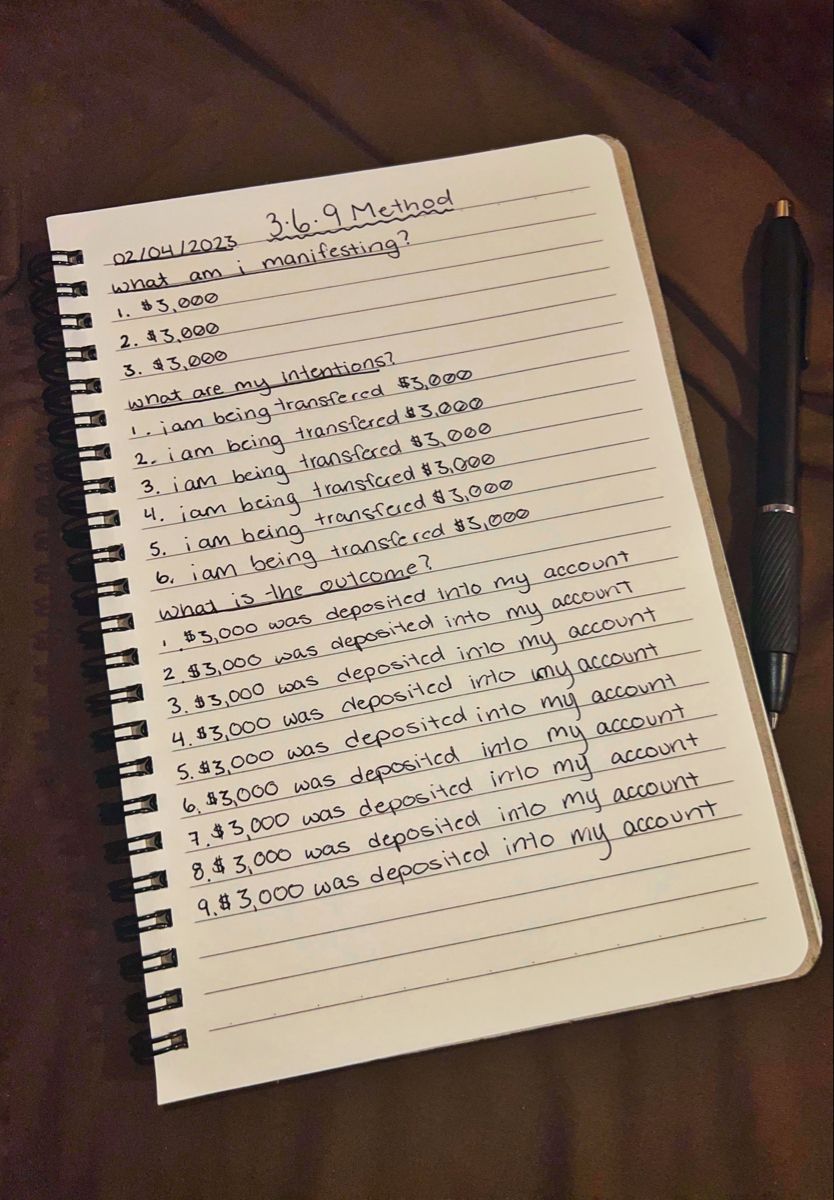 3.6.9 Method
02/04/2023
what am i manifesting?
1. $3,000
2. $3,000
3. $3,000
what are my intentions?
1. i am being transfered $3,000
2. i am being transfered $3,000
3. i am being transfered $3,000
4. i am being transfered $3,000
5. i am being transfered $3,000
6. i am being transfered $3,000
what is the outcome?
1. $3,000 was deposited into my account
2. $3,000 was deposited into my account
3. $3,000 was deposited into my account
4. $3,000 was deposited into my account
5. $3,000 was deposited into my account
6. $3,000 was deposited into my account
7. $3,000 was deposited into my account
8. $3,000 was deposited into my account
9. $3,000 was deposited into my account